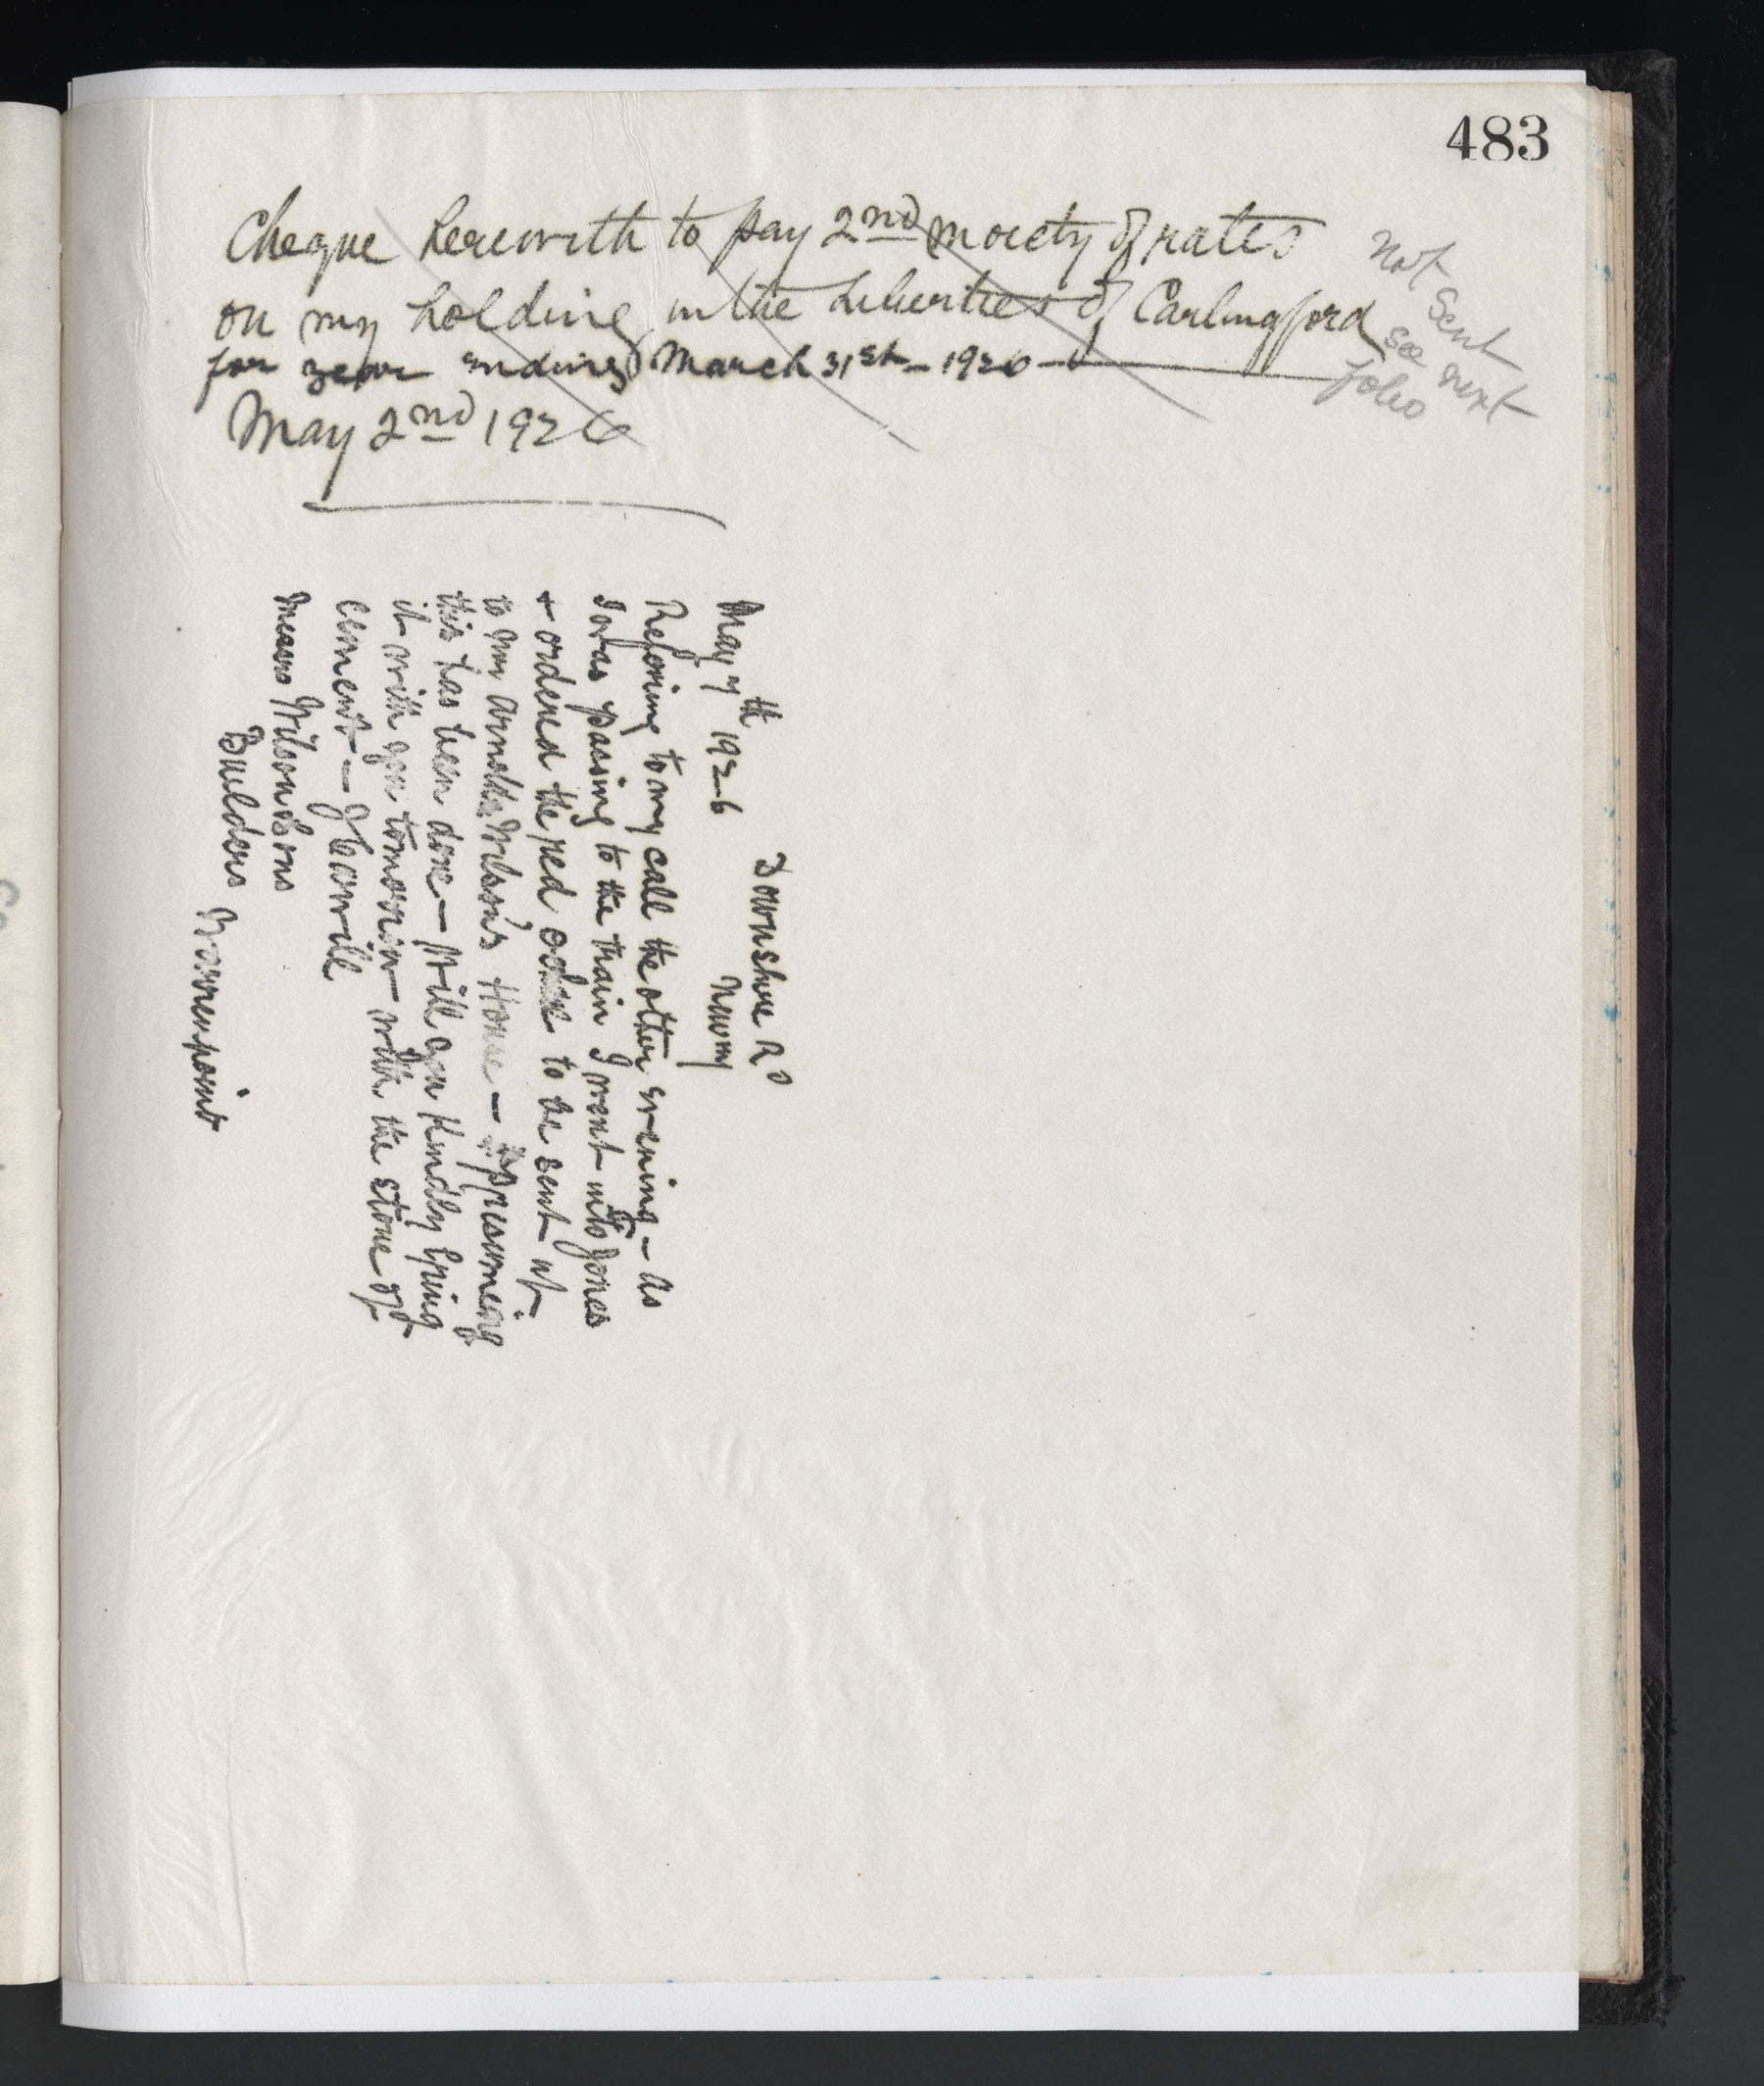 483
Cheque herewith to pay 2nd moiety of rates
on my holding in the Liberties of Carlingford
for year ending March 31st - 1926
May 2nd 1926
Not
Sent
See next
folio
Downshire Rd
Newry
May 7th 1926
Refering to my call the other evening - as
I was passing to the train I went into Jones
+ ordered the red ochre to be sent up
to Mr Arnold Wilson's House - presuming
this has been done - Will you kindly bring
it with you tomorrow - with the stone of
cement -
Messrs Wilson & Sons
Builders
Warrenpoint